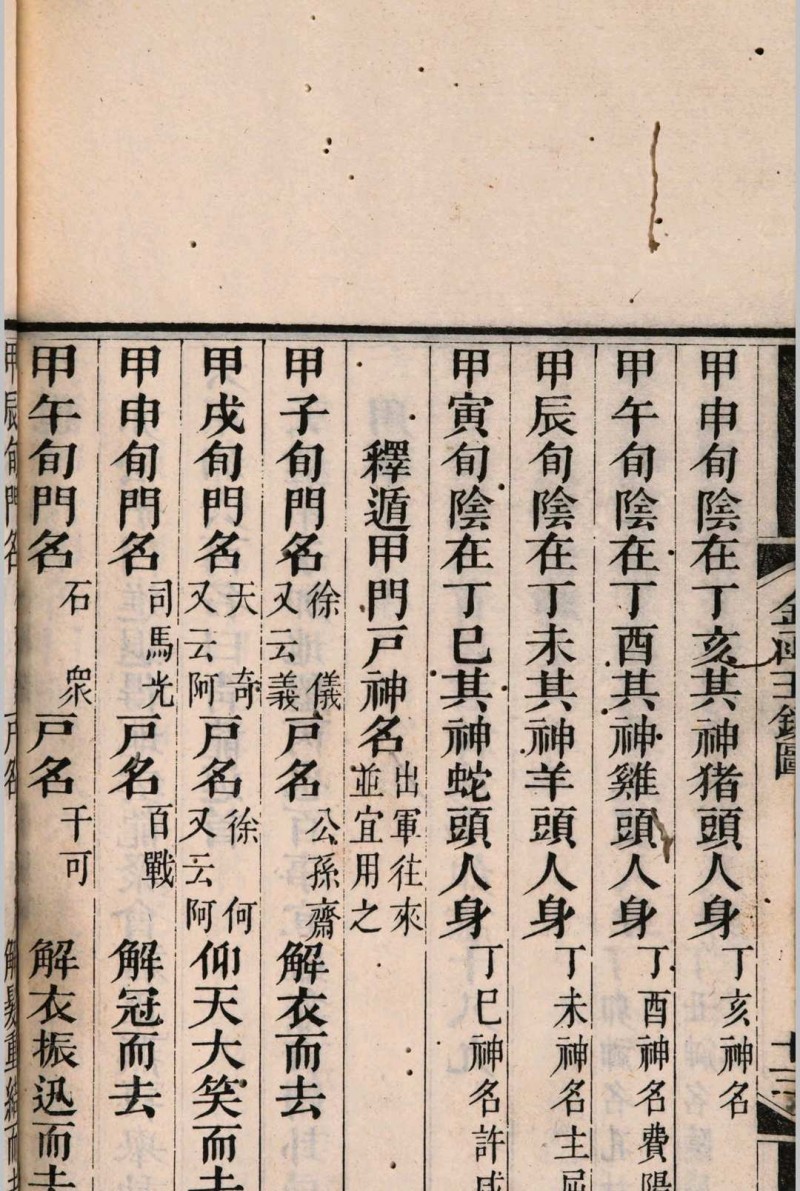 金函玉鏡圖 十三
甲申旬陰在丁亥其神猪頭人身丁亥神名
甲午旬陰在丁酉其神雞頭人身丁酉神名費陽
甲辰旬陰在丁未其神羊頭人身丁未神名王屈
甲寅旬陰在丁巳其神蛇頭人身丁巳神名許成
釋遁甲門戸神名出軍往來並宜用之
甲子旬門名徐儀又云義戸名公孫齋解衣而去
甲戌旬門名天奇又云阿戸名徐何又云阿仰天大笑而去
甲申旬門名司馬光戸名百戰解冠而去
甲午旬門名石衆戸名干可解衣振迅而去
甲辰旬門名 戸名